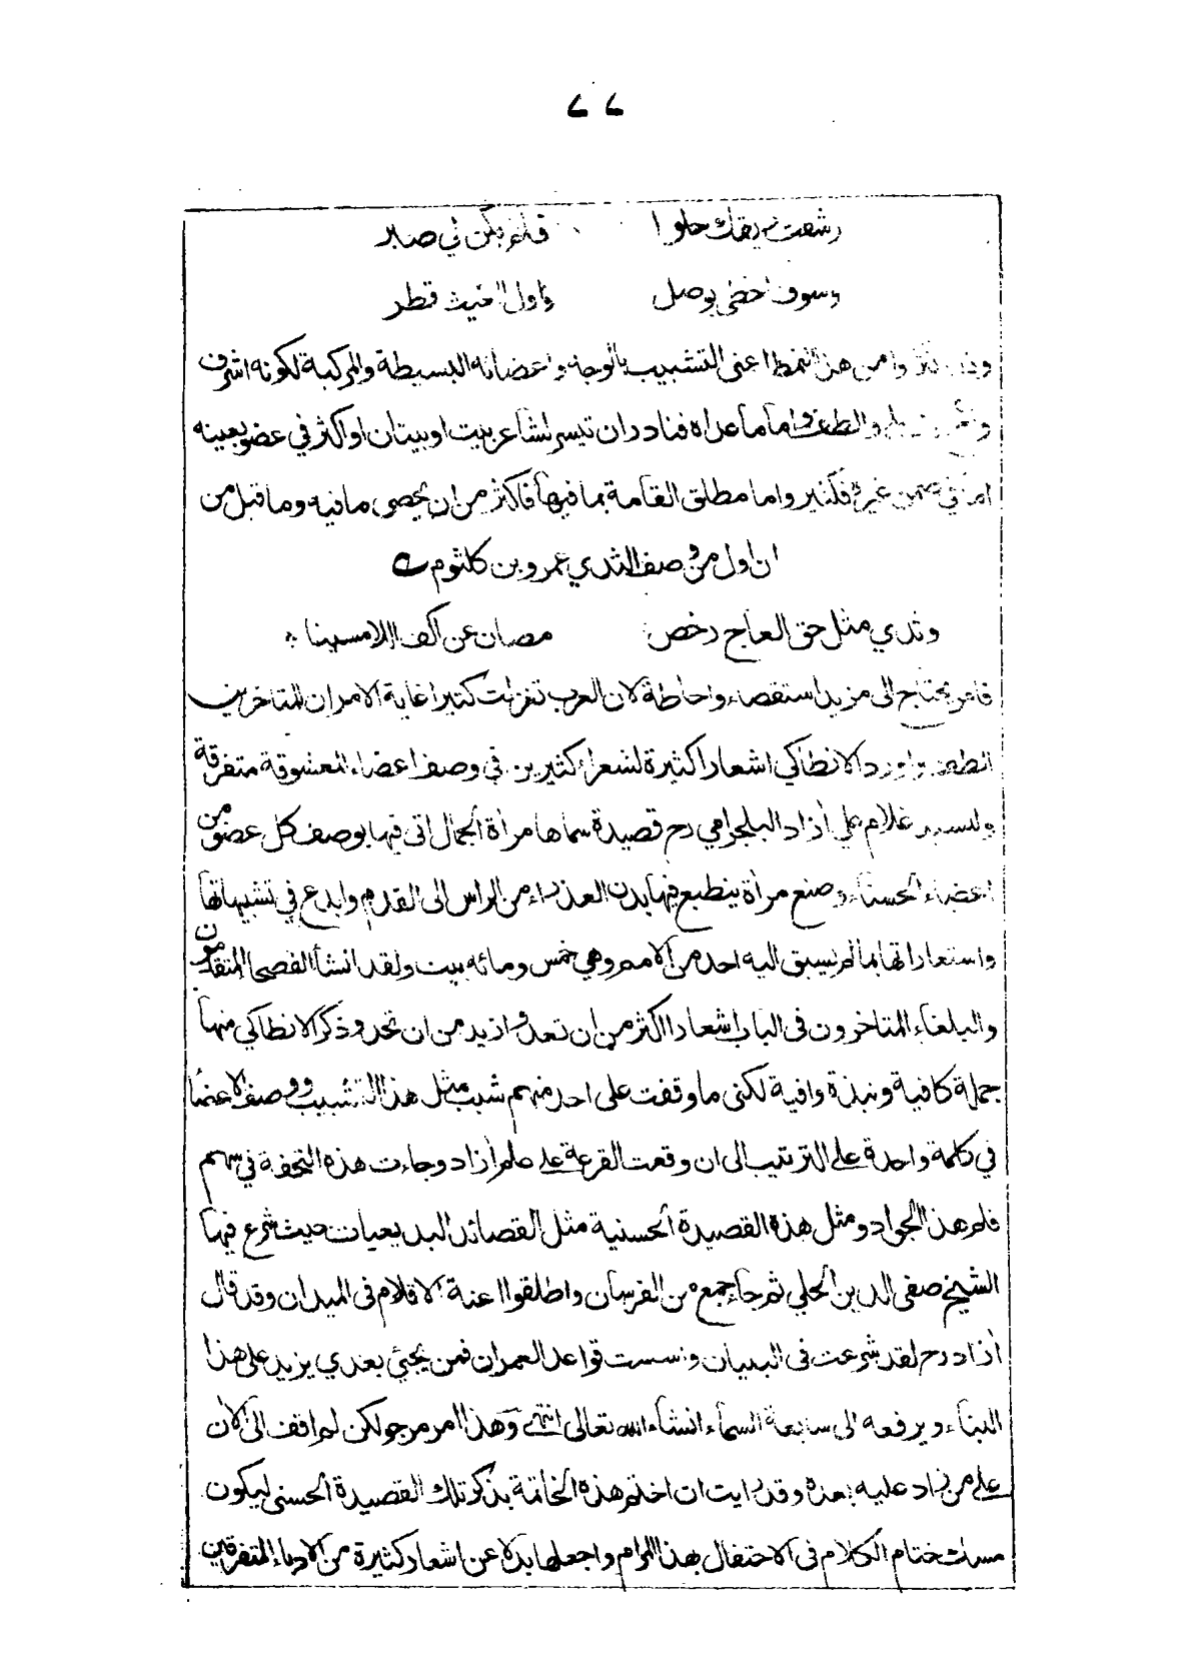 ٧٧
رشفت ريقك حلوا فلم يكن لي صبر
وسوف احظى بوصل واول الغيث قطر
وقد اكثروا من هذا النمط اعنى التشبيب بالوجه واعضائه البسيطة والمركبة لكونه اشرف
والطف واما ما عداه فنادر ان تيسر لشاعر بيت او بيتان او اكثر في عضو بعينه
اما في ضمن غيره فكثير واما مطلق القامة بما فيها فاكثر من ان يحصى ما فيه وما قبل من
ان اول من وصف الثدي عمرو بن كلثوم
وثدي مثل حق العاج رخص مصان عن اكف اللامسينا
فامر يحتاج الى مزيد استقصاء واحاطة لان العرب تغزلت كثيرا غاية الامر ان للمتاخرين
الطف واورد الانطاكي اشعارا كثيرة لشعراء كثيرين في وصف اعضاء المعشوقة متفرقة
وللسيد غلام علي أزاد البلجرامي رح قصيدة سماها مرأة الجمال اتى فيها بوصف كل عضو من
اعضاء الحسناء وصنع مرأة ينطبع فيها بدن العذراء من الراس الى القدم وابدع في تشبيهاتها
واستعاراتها بما لم يسبق اليه احد من الامم وهي خمس ومائه بيت ولقد انشأ الفصحا المتقدمون
والبلغاء المتاخرون فى الباب اشعارا اكثر من ان تعد وازيد من ان تحد وذكر الانطاكي منها
جملة كافية ونبذة وافية لكنى ما وقفت على احد منهم شبب مثل هذا التشبيب ووصف الاعضا
في كلمة واحدة على الترتيب الى ان وقعت القرعة على أزاد وجاءت هذه التحفة في سهم
قلم هذا الجواد ومثل هذه القصيدة الحسنية مثل القصائد البديعيات حيث شرع فيها
الشيخ صفي الدين الحلي ثم جاء جمع من الفرسان واطلقوا اعنة الاقلام فى الميدان وقد قال
أزاد رح لقد شرعت فى البنيان واسست قواعد العمران فمن يجئ بعدي يزيد على هذا
البناء ويرفعه الى سابعة السماء انشاء الله تعالى انتهى وهذا امر مرجو لكن لم اقف الى الأن
على من زاد عليه بعده وقد رايت ان اختم هذه الخاتمة بذكر تلك القصيدة الحسنى ليكون
مسك ختام الكلام فى الاحتفال بهذا المرام واجعلها بدلا عن اشعار كثيرة من الادباء المتفرقين